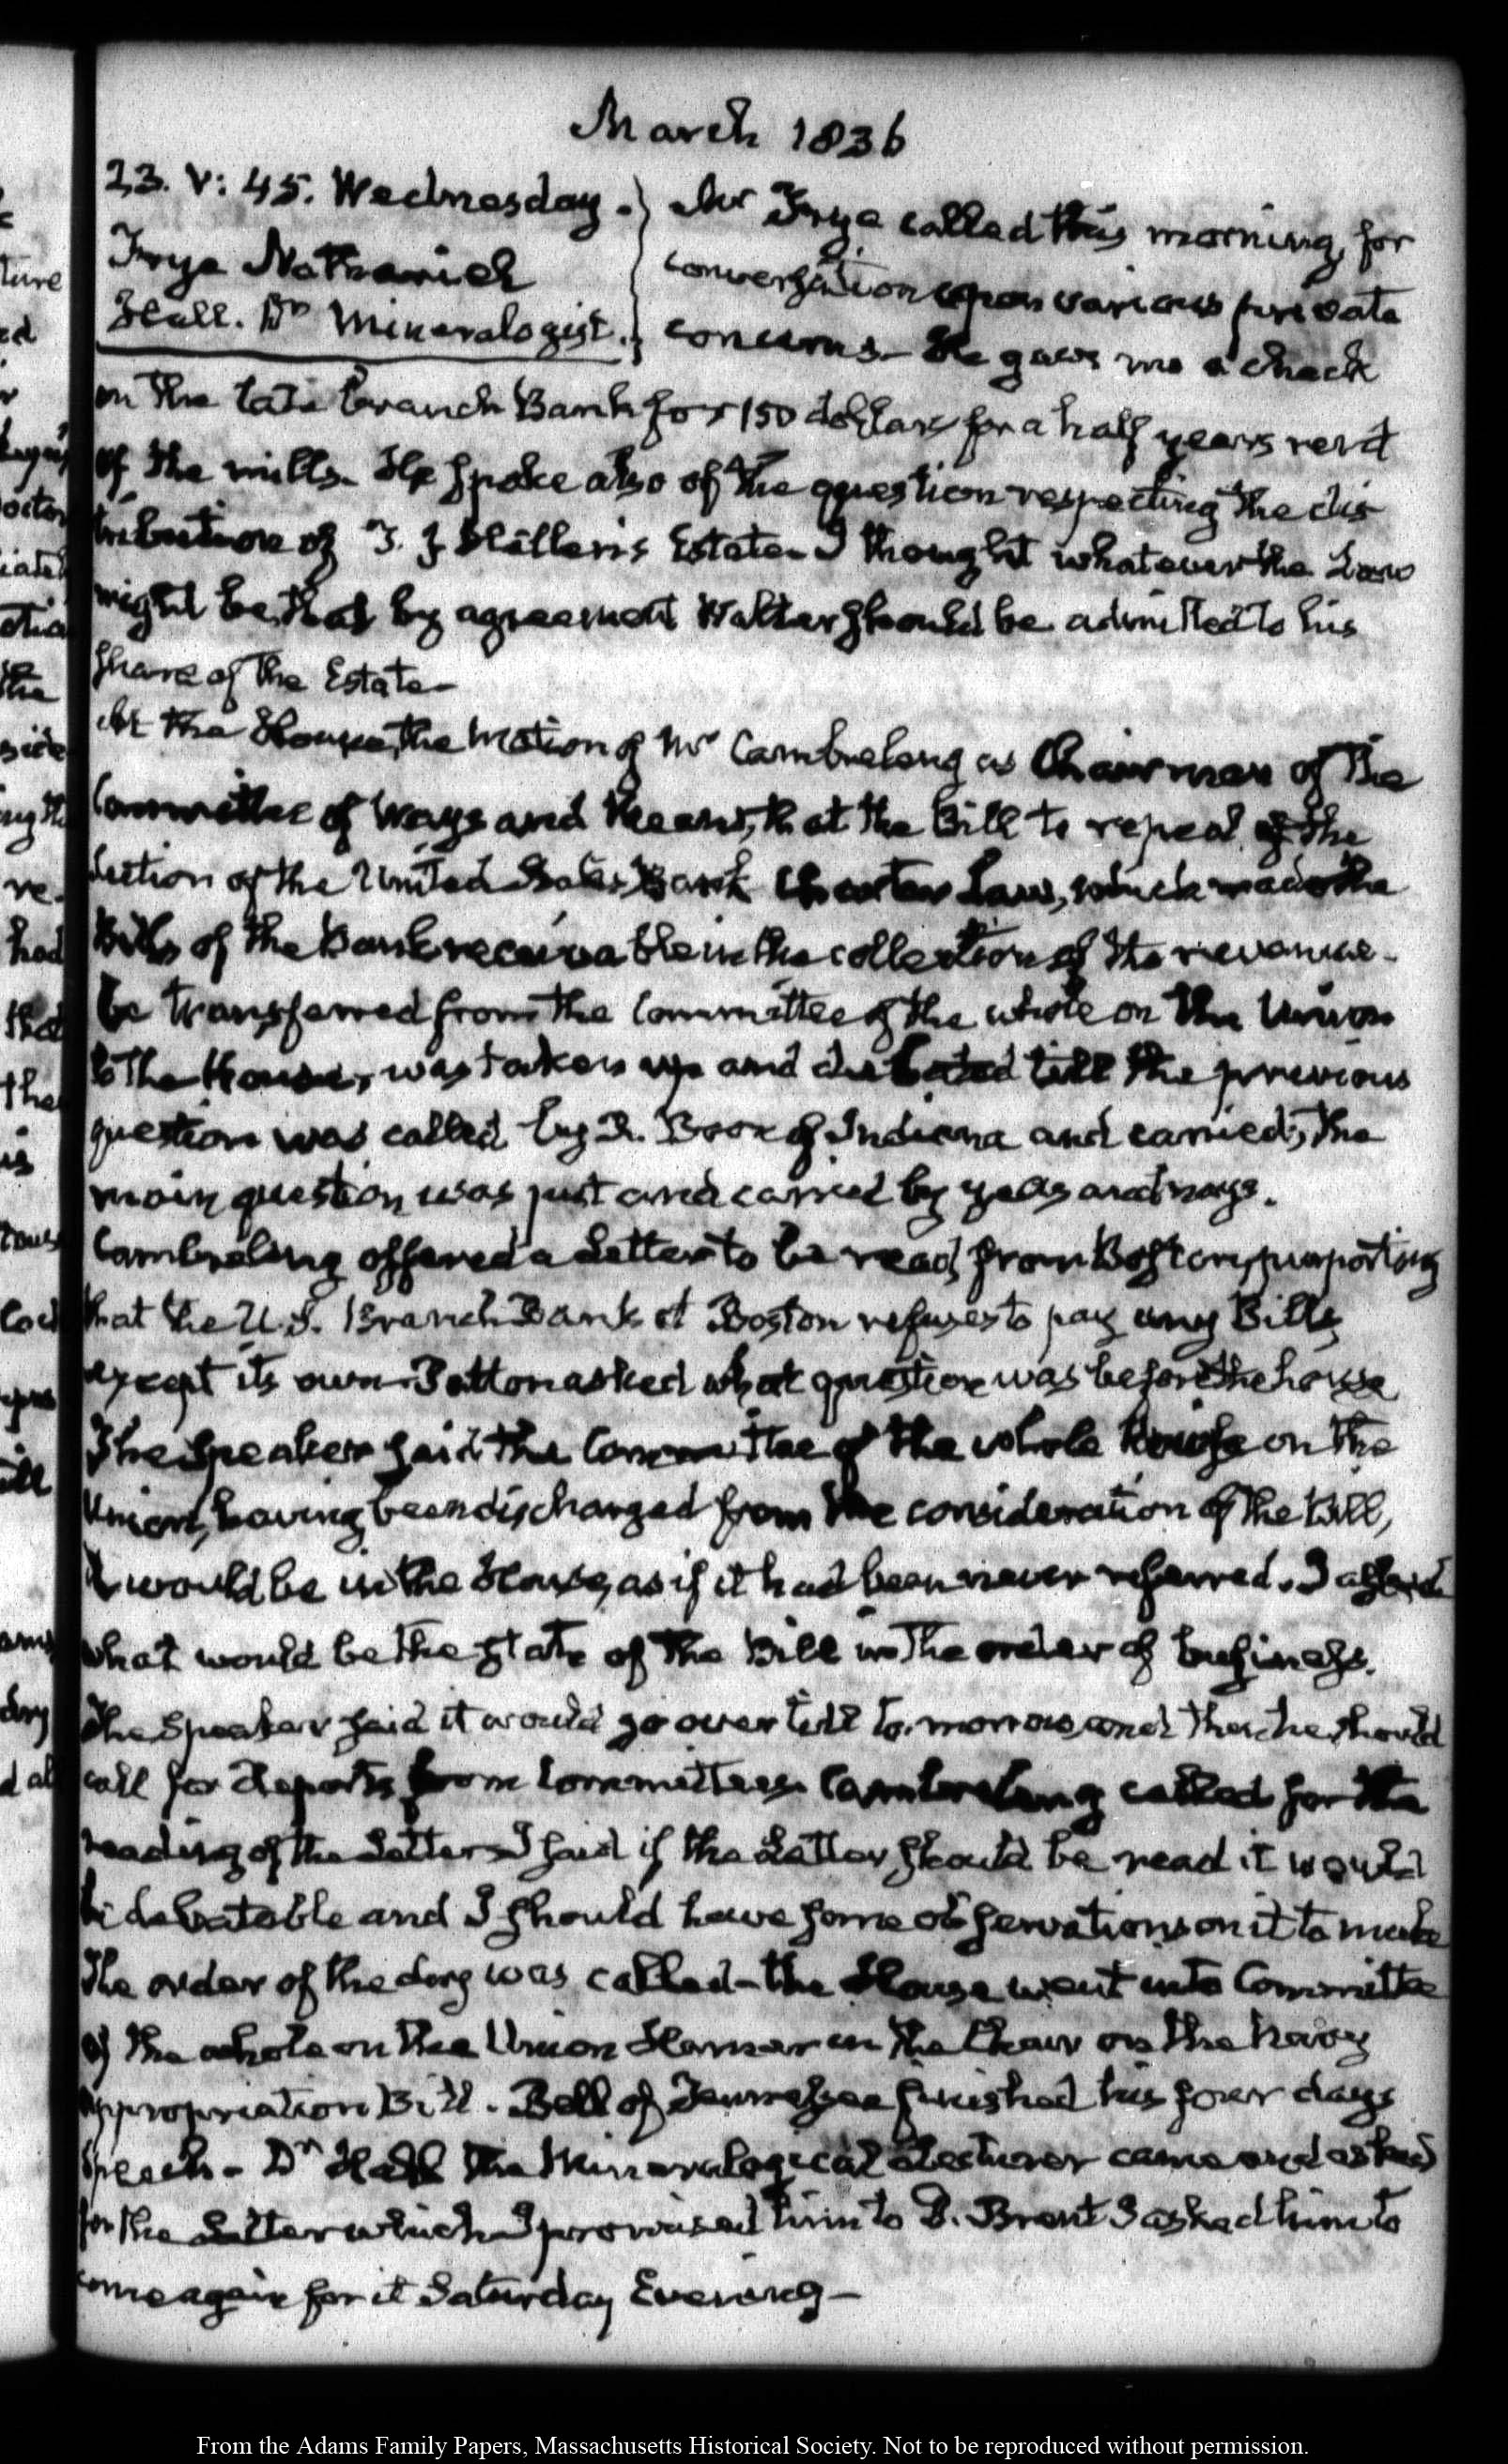 March 1836
23. V: 45. Wednesday.
Frye Nathaniel
Hall. Dr Mineralogist.
Mr Frye called this morning, for
conversation upon various private
concerns— He gave me a check
on the late branch Bank for 150 dollars for a half years rent
of the mills. He spoke also of the question respecting the dis
tribution of T. J Hellen's Estate— I thought whatever the Law
might be, that by agreement Walter should be admitted to his
share of the Estate—
At the House, the motion of Mr Cambreleng as Chairman of the
Committee of Ways and Means, that the Bill to repeal the
Section of the United States Bank Charter Law, which made the
Bills of the Bank receivable in the collection of the revenue—
be transferred from the Committee of the whole on the Union
to the House, was taken up and debated till the previous
question was called by R. Boon of Indiana and carried; the
main question was put and carried by yeas and nays.
Cambreleng offered a Letter to be read, from Boston, purporting
that the U.S. Branch Bank at Boston refuses to pay any Bills
except its own— Patton asked what question was before the house
The Speaker said the Committee of the whole House on the
Union, having been discharged from the consideration of the Bill,
it would be in the House, as if it had been never referred. I asked
what would be the state of the Bill in the order of business.
The Speaker said it would go over till to-morrow, and then he should
call for Reports from Committees. Cambreleng called for the
reading of the Letter— I said if the Letter should be read it would
be debateable and I should have some observations on it to make
The order of the day was called— the House went into Committee
of the whole on the Union Hamer in the Chair on the Navy
appropriation Bill. Bell of Tennessee finished his four days
speech— Dr Hall the Mineralogical Lecturer came and asked
for the Letter which I promised him to D. Brent I asked him to
come again for it Saturday Evening—
From the Adams Family Papers, Massachusetts Historical Society. Not to be reproduced without permission.